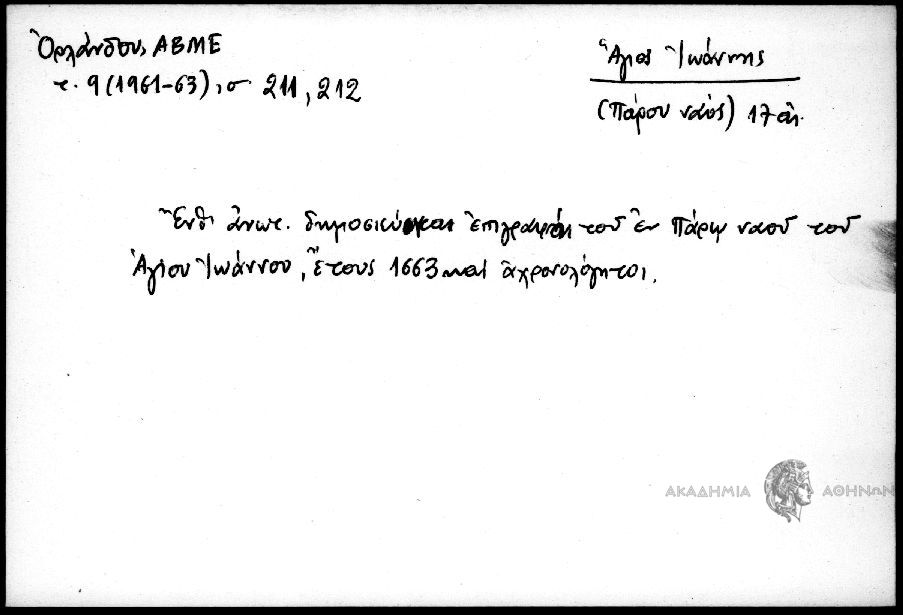 Ὀρλάνδου, ΑΒΜΕ
τ. 9 (1961-63), σ. 211, 212
Ἅγιος Ἰωάννης
(Πάρου ναός) 17 αἰ.
Ἔνθ' ἀνωτ. δημοσιεύονται ἐπιγραφαί τοῦ ἐν Πάρῳ ναοῦ τοῦ
Ἁγίου Ἰωάννου, ἔτους 1663 καί ἀχρονολόγητοι.
ΑΚΑΔΗΜΙΑ ΑΘΗΝΩΝ